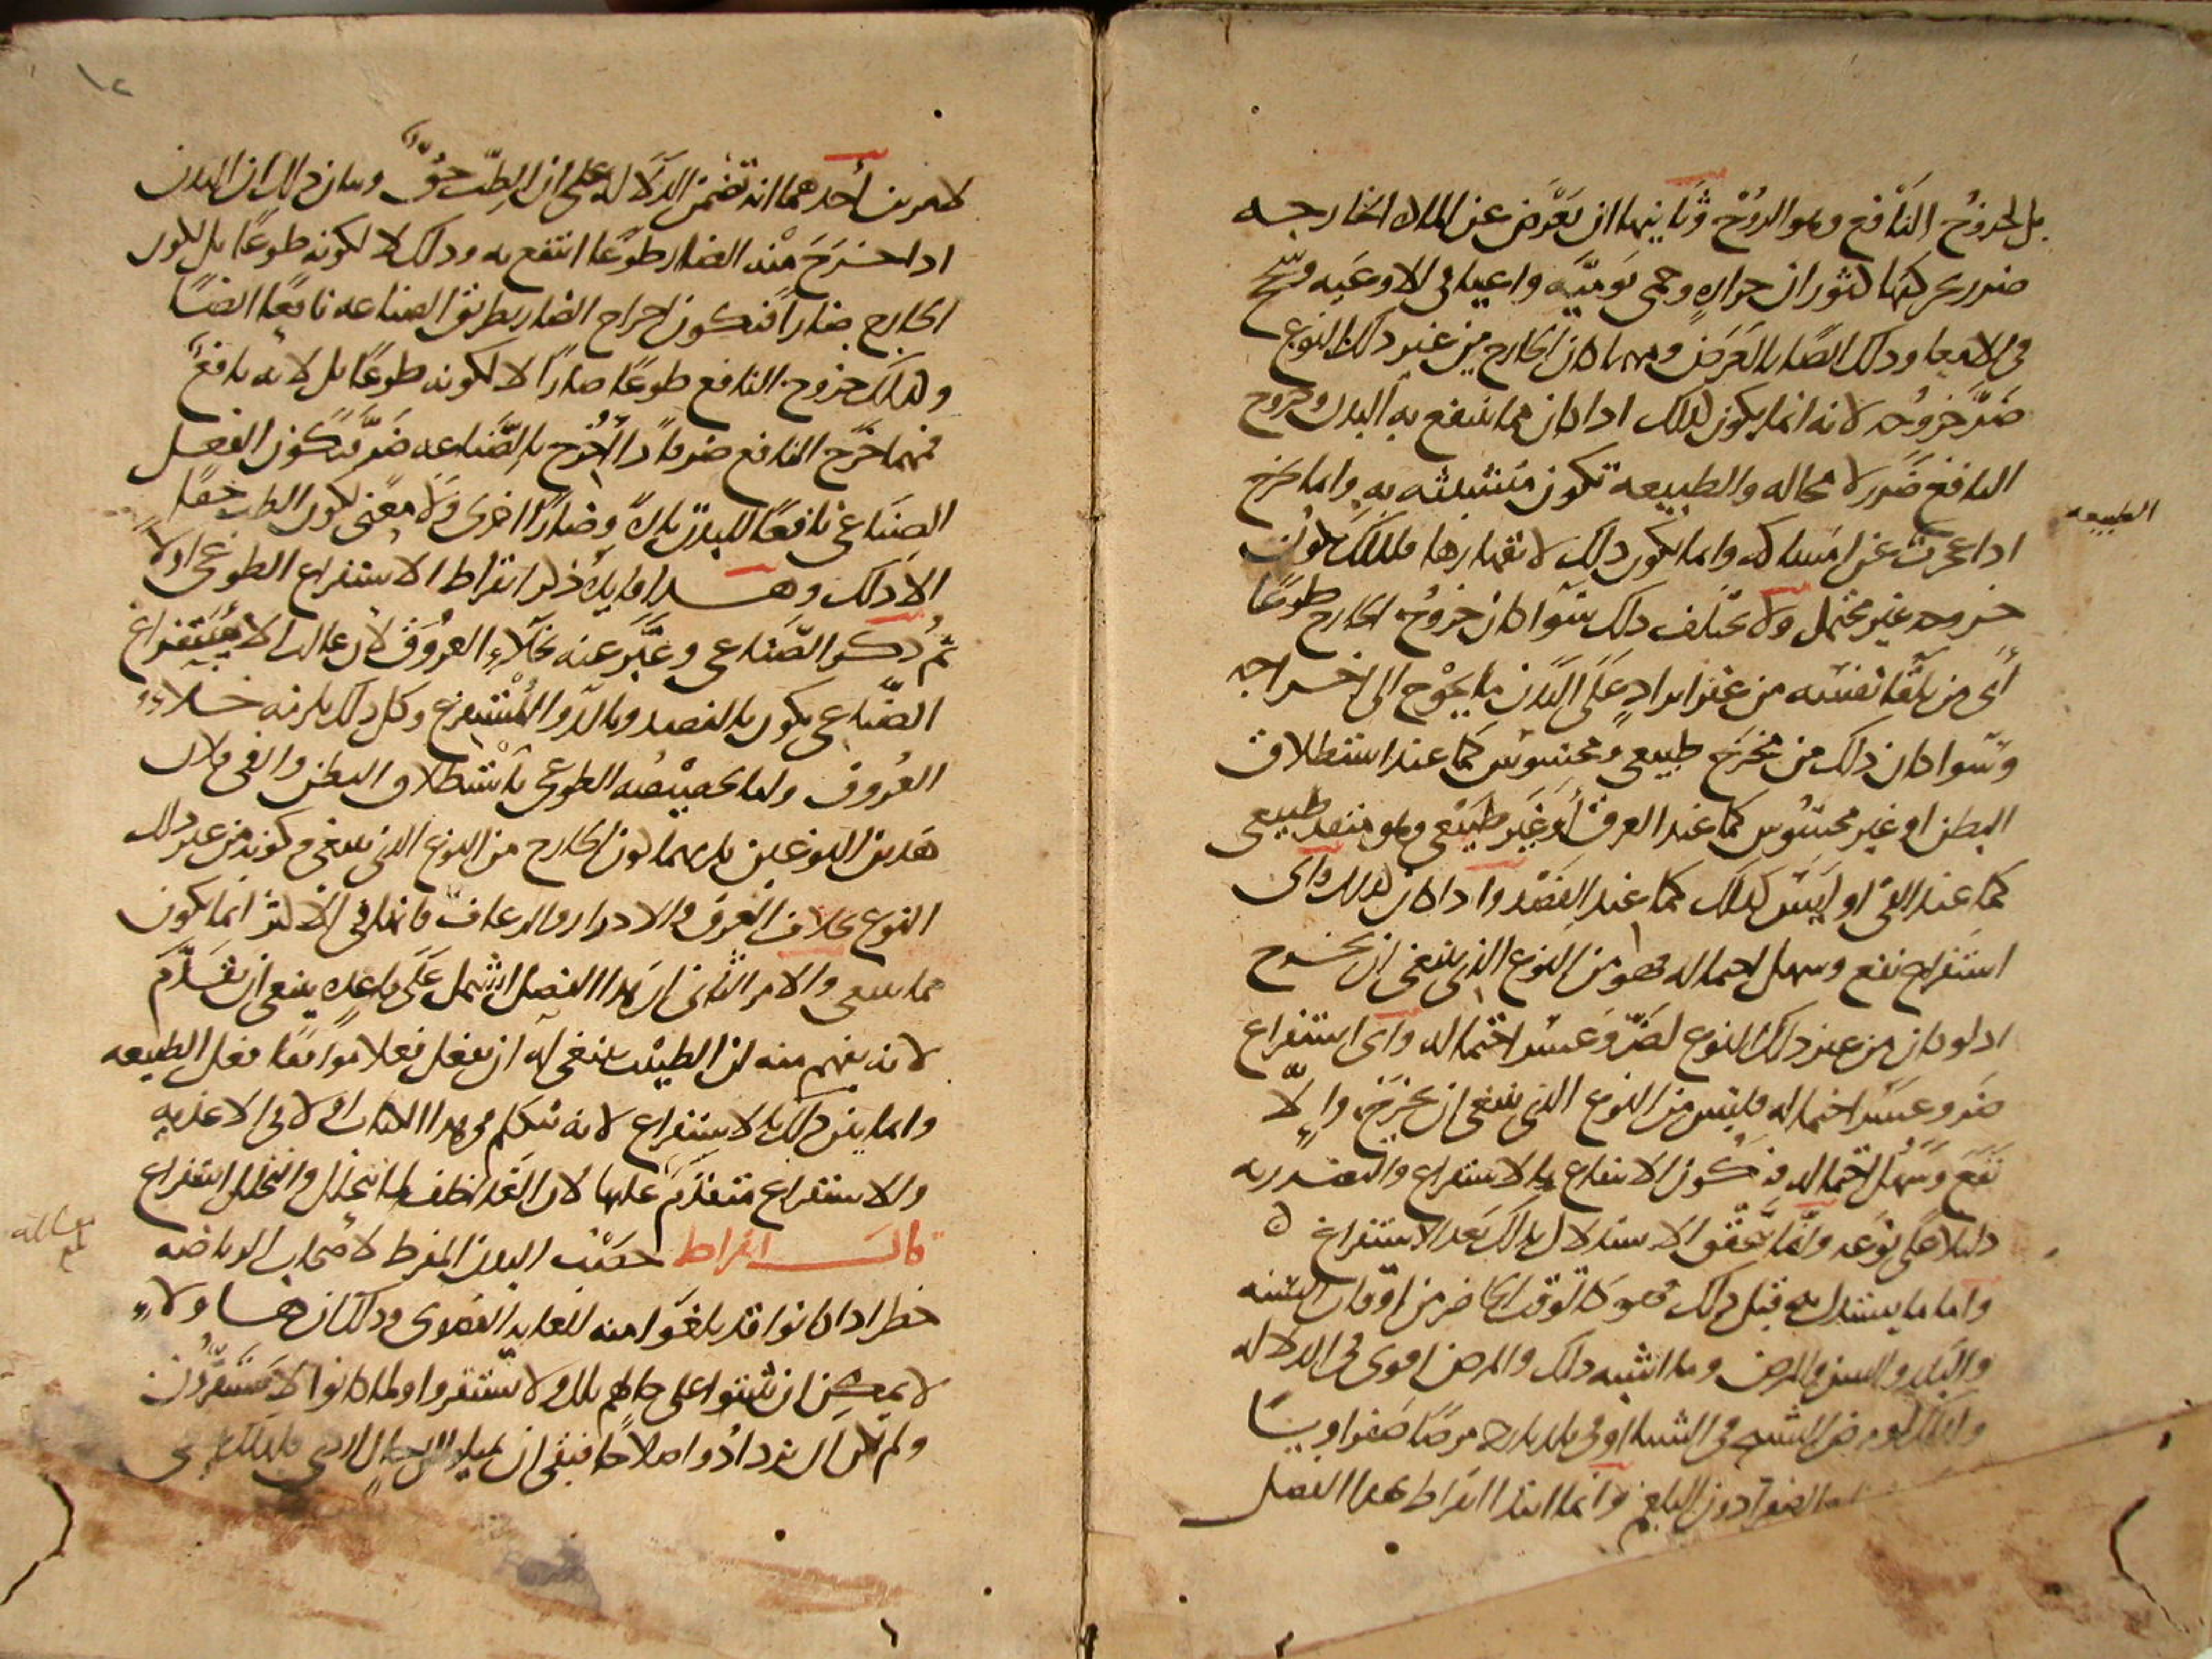 بل لخروج النافع وهو الروح وثانيهما ان يعرض عن الماده الخارجه
ضرر بحركتها لثوران حراره وحمى يوميه واعيا فى الاوعيه وسحج
فى الامعا وذلك ايضا بالعرض ومهما كان الخارج من غير ذلك النوع
ضر خروجه لانه انما يكون كذلك اذا كان مما ينتفع به البدن وخروج
النافع ضرر لا محاله والطبيعه تكون متشبثه به وانما يخرج
الطبيعه
اذا عجزت عن امساكه وانما يكون ذلك لانقهارها فلذلك يكون
خروجه غير محتمل ولا يختلف ذلك سوا كان خروج الخارج طوعا
أى من تلقا نفسه من غير ايراد على البدن ما يحوج الى اخراجه
وسوا كان ذلك من مخرج طبيعى ومحسوس كما عند استطلاق
البطن او غير محسوس كما عند العرق أو غير طبيعى وهو منفذ طبيعى
كما عند القى او ليس كذلك كما عند الفصد واذا كان كذلك واى
استفراغ نفع وسهل احتماله فهو من النوع الذى ينبغى ان يخرج
اذ لو كان من غير ذلك النوع لضر وعسر احتماله واى استفراغ
ضر وعسر احتماله فليس من النوع الذى ينبغى ان يخرج والا
نفع وسهل احتماله فيكون الانتفاع بالاستفراغ والتضرر به
دليلا على نوعه وانما يتحقق الاستدلال بذلك بعد الاستفراغ ه
واما ما يستدل به قبل ذلك فهو كالوقت الحاضر من اوقات السنه
والبلد والسن والمرض وما اشبه ذلك والمرض اقوى فى الدلاله
ولذلك لو مرض الشيخ فى الشتا او فى بلد بارد مرضا صفراويا
الصفرا دون البلغم وانما ابتدا ابقراط بهذا الفصل
١٢
لامرين أحدهما انه تضمن الدلاله على ان الطب حق وبيان ذلك ان البدن
اذا خرج منه الضار طوعا انتفع به وذلك لا لكونه طوعا بل لكون
الخارج ضارا فيكون اخراج الضار بطريق الصناعه نافعا ايضا
وكذلك خروج النافع طوعا ضارا لا لكونه طوعا بل لانه نافع
فمهما خرج النافع ضر فاذا أخرج بالصناعه ضر فيكون الفعل
الصناعى نافعا للبدن تارة وضارا اخرى ولا معنى لكون الطب حقا
الا ذلك وهـــذا فايدة ذكر ابقراط الاستفراغ الطوعى اولا
ثم ذكر الصناعى وعبر عنه بخلاء العروق لان غالب الاستفراغ
الصناعى يكون بالفصد وبالدوا المستفرغ وكل ذلك يلزمه خلاء
العروق وانما تخصيصه الطوعى باستطلاق البطن والقى فلان
هذين النوعين يلزمهما كون الخارج من النوع الذى ينبغى وكونه من غير ذلك
النوع بخلاف العرق والادرار والرعاف فانها فى الاكثر انما يكون
مما ينبغى والامر الثانى ان هذا الفصل اشتمل على قاعده ينبغى ان تقدم
لانه يفهم منه ان الطبيب ينبغى له ان يفعل فعلا موافقا لفعل الطبيعه
وانما بين ذلك بالاستفراغ لانه تكلم فى هذا الكتاب اولا فى الاغذيه
والاستفراغ متقدم عليها لان الغذا خلف لما يتحلل والتحلل استفراغ
قال ابقراط خصب البدن المفرط لاصحاب الرياضه
خطر اذا كانوا قد بلغوا منه الغايه القصوى وذلك ان هـــاولاء
لا يمكن ان يثبتوا على حالهم تلك ولا يستقروا ولما كانوا لا يستقرون
ولم يمكن ان يزدادوا صلاحا فبقى ان يميلوا الى حال اردى فلذلك ينبغى